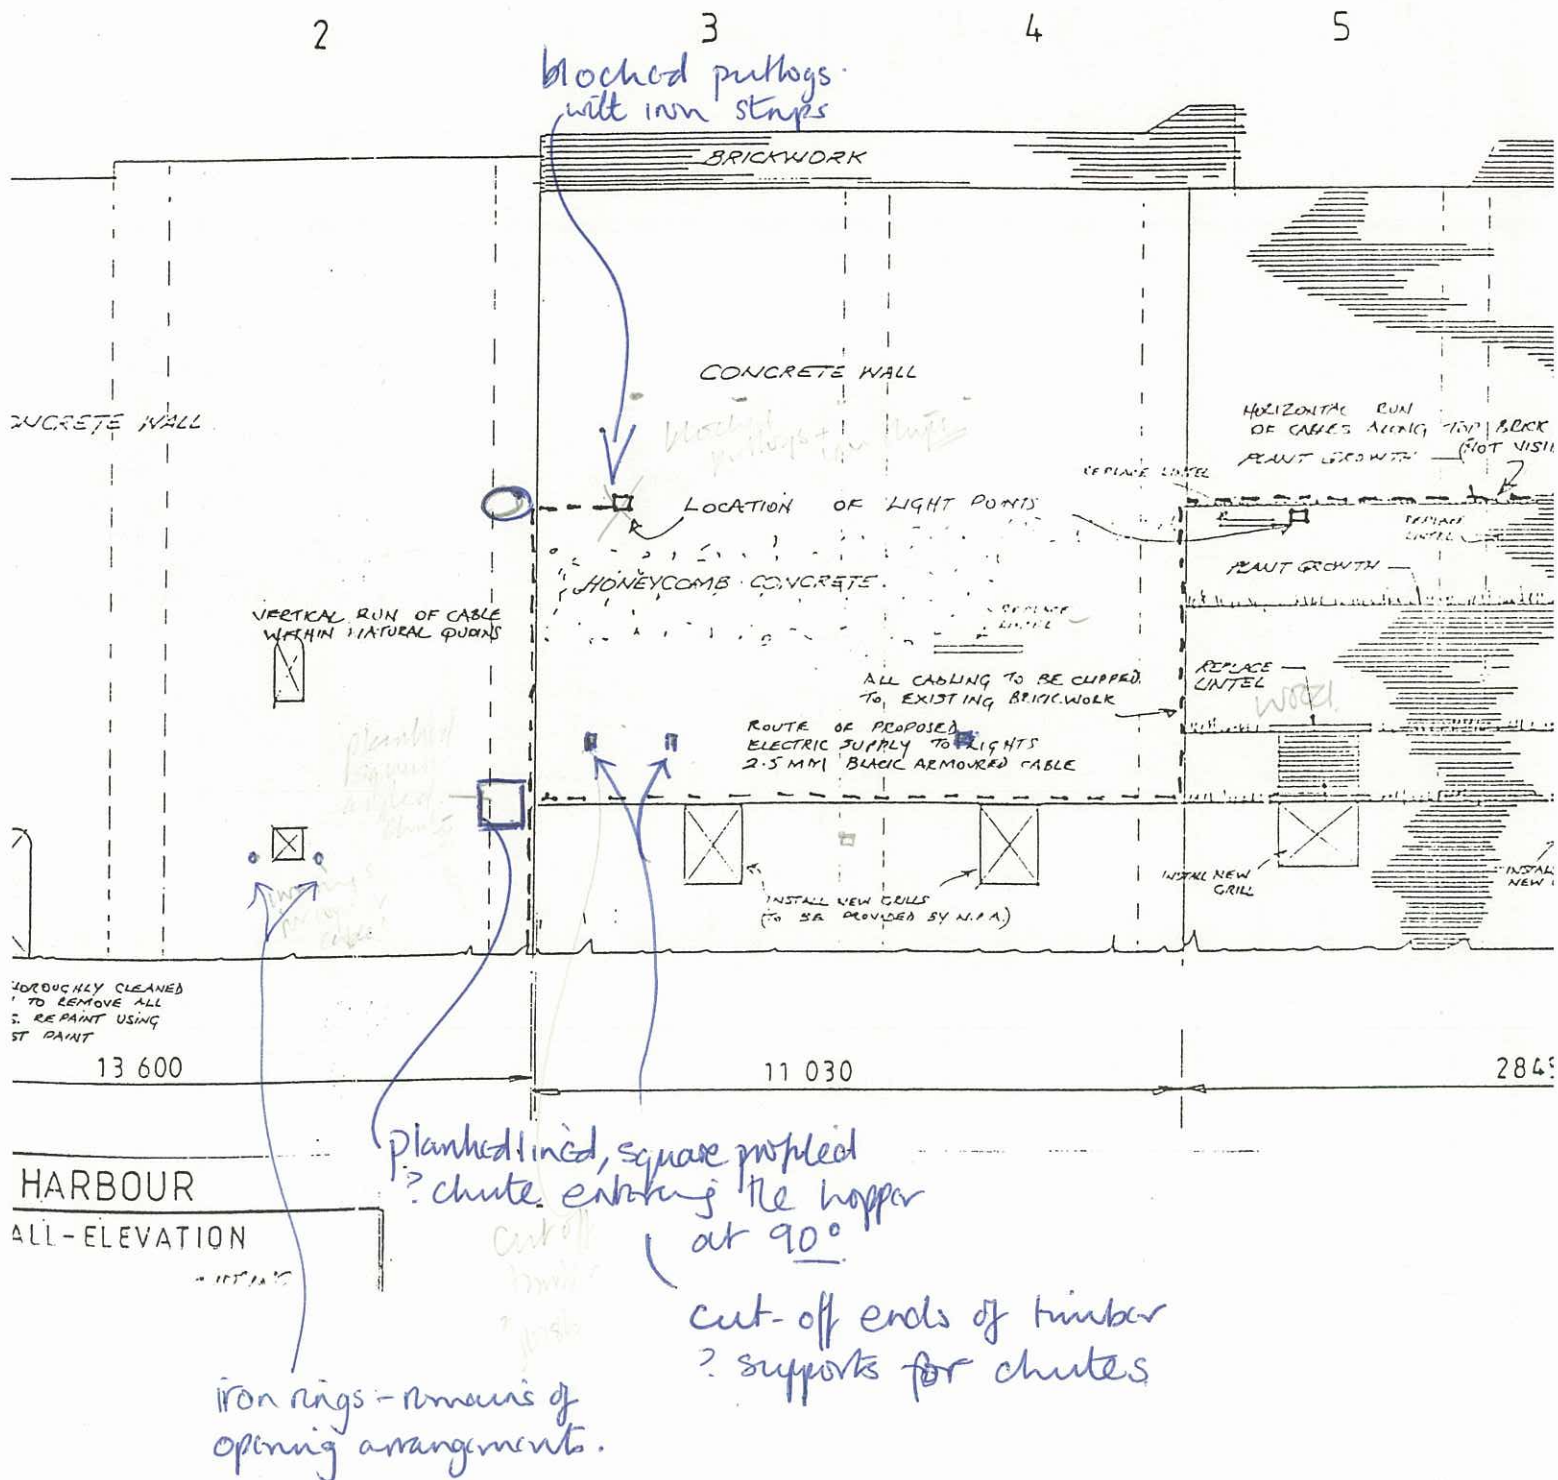 2
3
4
5
blocked putlogs.
with iron straps
BRICKWORK
CONCRETE WALL
ONCRETE WALL
blocked
putlogs +
iron straps
HORIZONTAL RUN
OF CABLES ALONG TOP BRICK
(NOT VISI
PLANT GROWTH
REPLACE LINTEL
LOCATION OF LIGHT POINTS
REPLACE
LINTEL
PLANT GROWTH
HONEYCOMB CONCRETE.
REPLACE
LINTEL
VERTICAL RUN OF CABLE
WITHIN NATURAL QUOINS
ALL CABLING TO BE CLIPPED
TO EXISTING BRICKWORK
REPLACE
LINTEL
wood
ROUTE OF PROPOSED
ELECTRIC SUPPLY TO LIGHTS
2.5 MM BLACK ARMOURED CABLE
planked
square
angled
chute
iron rings
cable
INSTALL NEW GRILLS
(TO BE PROVIDED BY N.P.A.)
INSTALL NEW
GRILL
INSTAL
NEW
HOROUGHLY CLEANED
TO REMOVE ALL
S. REPAINT USING
ST PAINT
13 600
11 030
2849
HARBOUR
ALL-ELEVATION
planked lined, square profiled
? chute entering the hopper
at 90°
cut off
cut-off ends of timber
? supports for chutes
iron rings - remains of
opening arrangements.